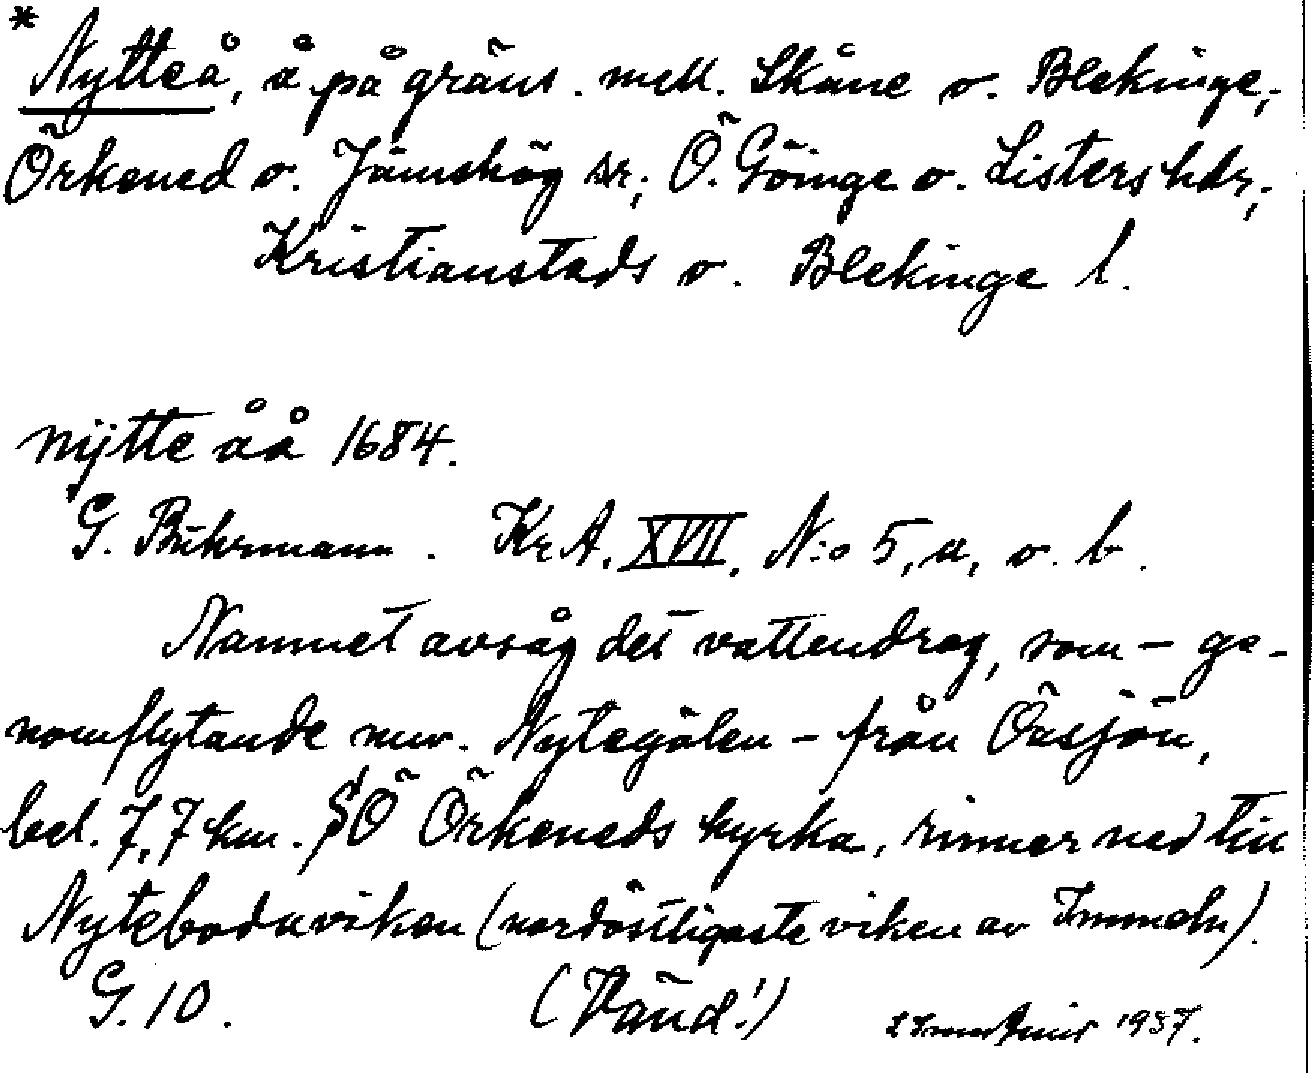 * Nytteå, å på gräns. mell. Skåne o. Blekinge,
Örkened o. Jämshög sr; Ö. Göinge o. Listers hdr,
Kristianstads o. Blekinge l.
nÿtte åå 1684.
G. Buhrmann. Kr A. XVII. N:o 5, a, o. b.
Namnet avsåg det vattendrag, som – ge-
nomflytande nuv. Nytegölen – från Öasjön,
bel. 7,7 km. SÖ Örkeneds kyrka, rinner ned till
Nytebodaviken (nordöstligaste viken av Immeln).
G. 10. (Vänd!) 1937.